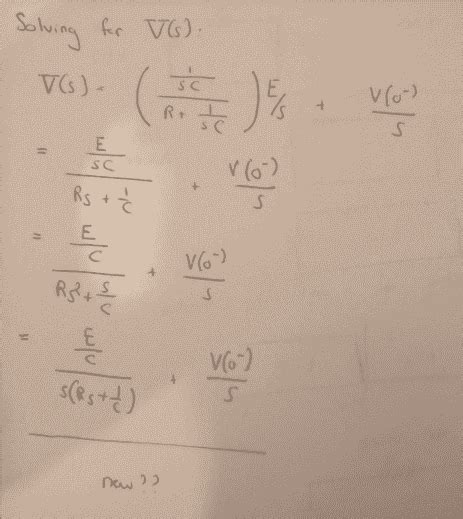 Solving for V(s).
V(s) = ( (1/sC) / (R + 1/sC) ) E/s + V(0⁻)/s
= (E/sC) / (Rs + 1/C) + V(0⁻)/s
= (E/C) / (Rs² + s/C) + V(0⁻)/s
= (E/C) / (s(Rs + 1/C)) + V(0⁻)/s
now??